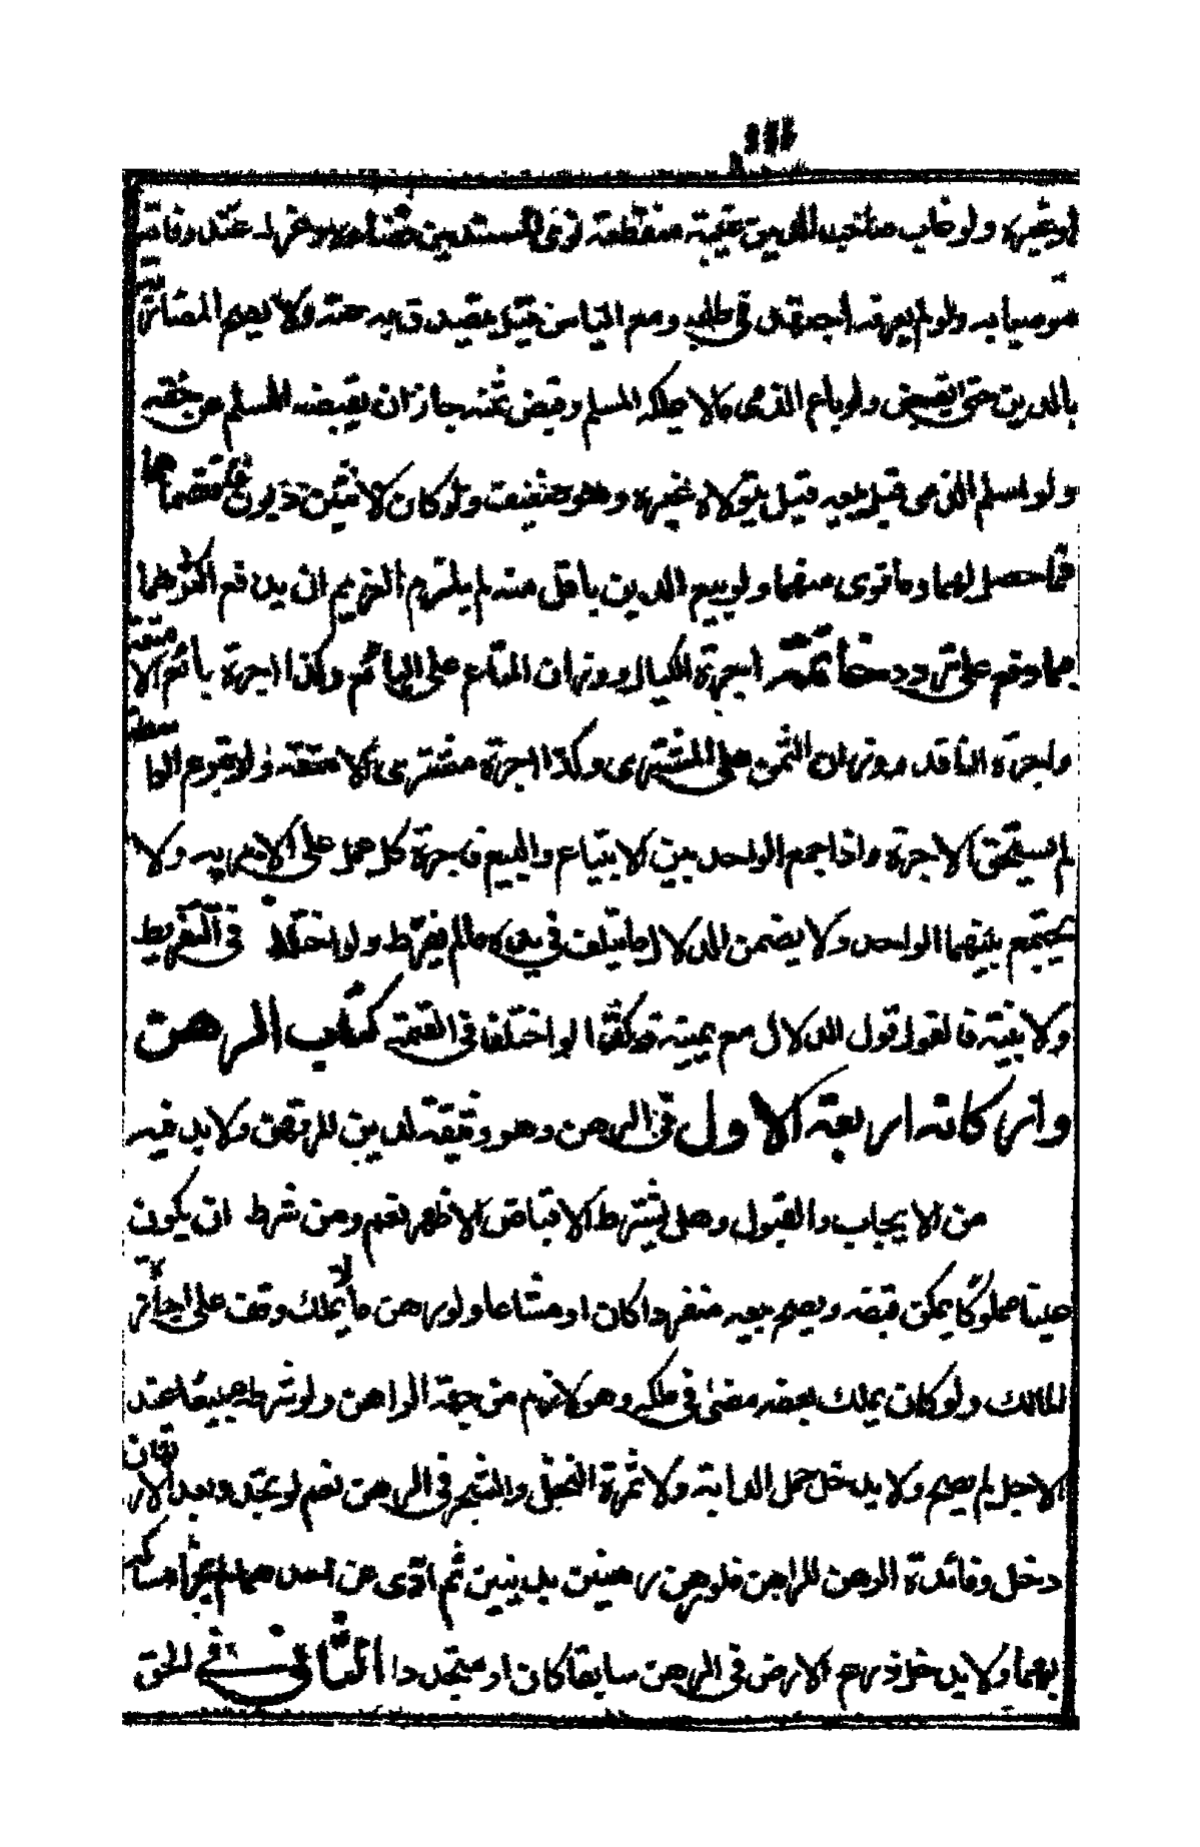 ١١١
او غيره ولو غاب صاحب الدين غيبة منقطعة نوى المستدين قضاءه وعزله عند وفاته
موصيا به ولو لم يعرفه اجتهد في طلبه ومع الياس قيل يتصدق به عنه ولا يصح المضاربة
بالدين حتى يقبض ولو باع الذمي ما لا يملكه المسلم وقبض ثمنه جاز ان يقبضه المسلم عن حقه
ولو اسلم الذمي قبل بيعه قيل يتولاه غيره وهو ضعيف ولو كان لاثنين ديون فاقتسماها
فما حصل لهما وما توى منهما ولو بيع الدين باقل منه لم يلتزم الغريم ان يدفع اكثر مما
دفع على تردد خاتمة اجرة الكيال ووزان المتاع على البائع وكذا اجرة بائع الامتعة
واجرة الناقد ووزان الثمن على المشتري وكذا اجرة مشتري الامتعة ولو تبرع الواسطة
لم يستحق الاجرة واذا جمع الواحد بين الابتياع والبيع فاجرة كل عمل على الامر به ولا
يجتمع بينهما الواحد ولا يضمن الدلال ما يتلف في يده ما لم يفرط ولو اختلفا في التفريط
ولا بينة فالقول قول الدلال مع يمينه وكذا لو اختلفا في القيمة كتاب الرهن
واركانه اربعة الاول في الرهن وهو وثيقة لدين المرتهن ولا بد فيه
من الايجاب والقبول وهل يشترط الاقباض الاظهر نعم ومن شرطه ان يكون
عينا مملوكا يمكن قبضه ويصح بيعه منفردا كان او مشاعا ولو رهن ما لا يملك وقف على اجازة
المالك ولو كان يملك بعضه مضى في ملكه وهو لازم من جهة الراهن ولو شرطه مبيعا عند
الاجل لم يصح ولا يدخل حمل الدابة ولا ثمرة النخل والشجر في الرهن نعم لو تجدد بعد الارتهان
دخل وفائدة الرهن للراهن ولو رهن رهنين بدينين ثم ادى عن احدهما لم يجز امساكه
بهما ولا يدخل زرع الارض في الرهن سابقا كان او متجددا الثاني في الحق